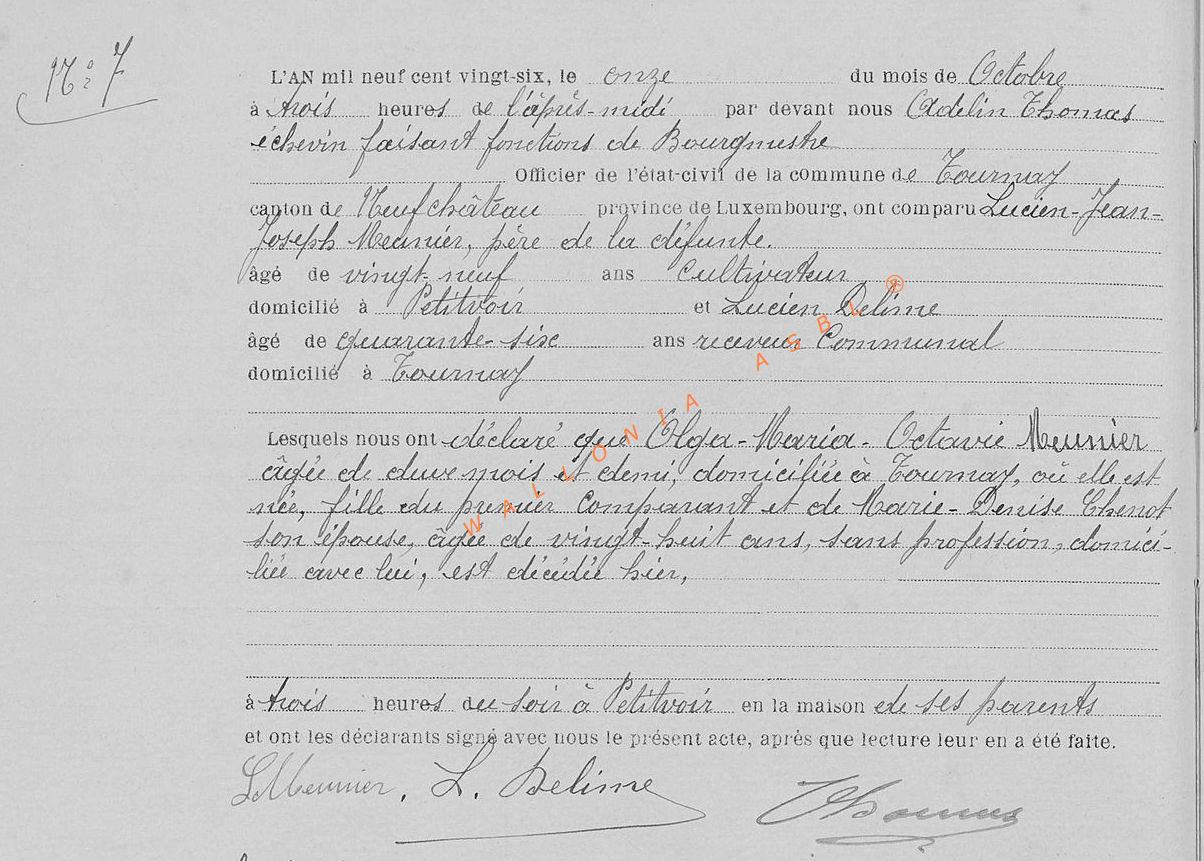 N° 7
L'AN mil neuf cent vingt-six, le onze du mois de Octobre
à trois heures de l'après-midi par devant nous Adelin Thomas
échevin faisant fonctions de Bourgmestre
Officier de l'état-civil de la commune de Tournay
canton de Neufchâteau province de Luxembourg, ont comparu Lucien-Jean-
Joseph Meunier, père de la défunte.
âgé de vingt-neuf ans cultivateur
domicilié à Petitvoir et Lucien Delime
âgé de quarante-six ans receveur Communal
domicilié à Tournay
Lesquels nous ont déclaré que Olga-Maria-Octavie Meunier
âgée de deux mois et demi, domiciliée à Tournay, où elle est
née, fille du premier Comparant et de Marie-Denise Chenot
son épouse, âgée de vingt-huit ans, sans profession, domici-
liée avec lui, est décédée hier,
à trois heures du soir à Petitvoir en la maison de ses parents
et ont les déclarants signé avec nous le présent acte, après que lecture leur en a été faite.
L Meunier. L. Delime Thomas
WALLONIA ASBL ®